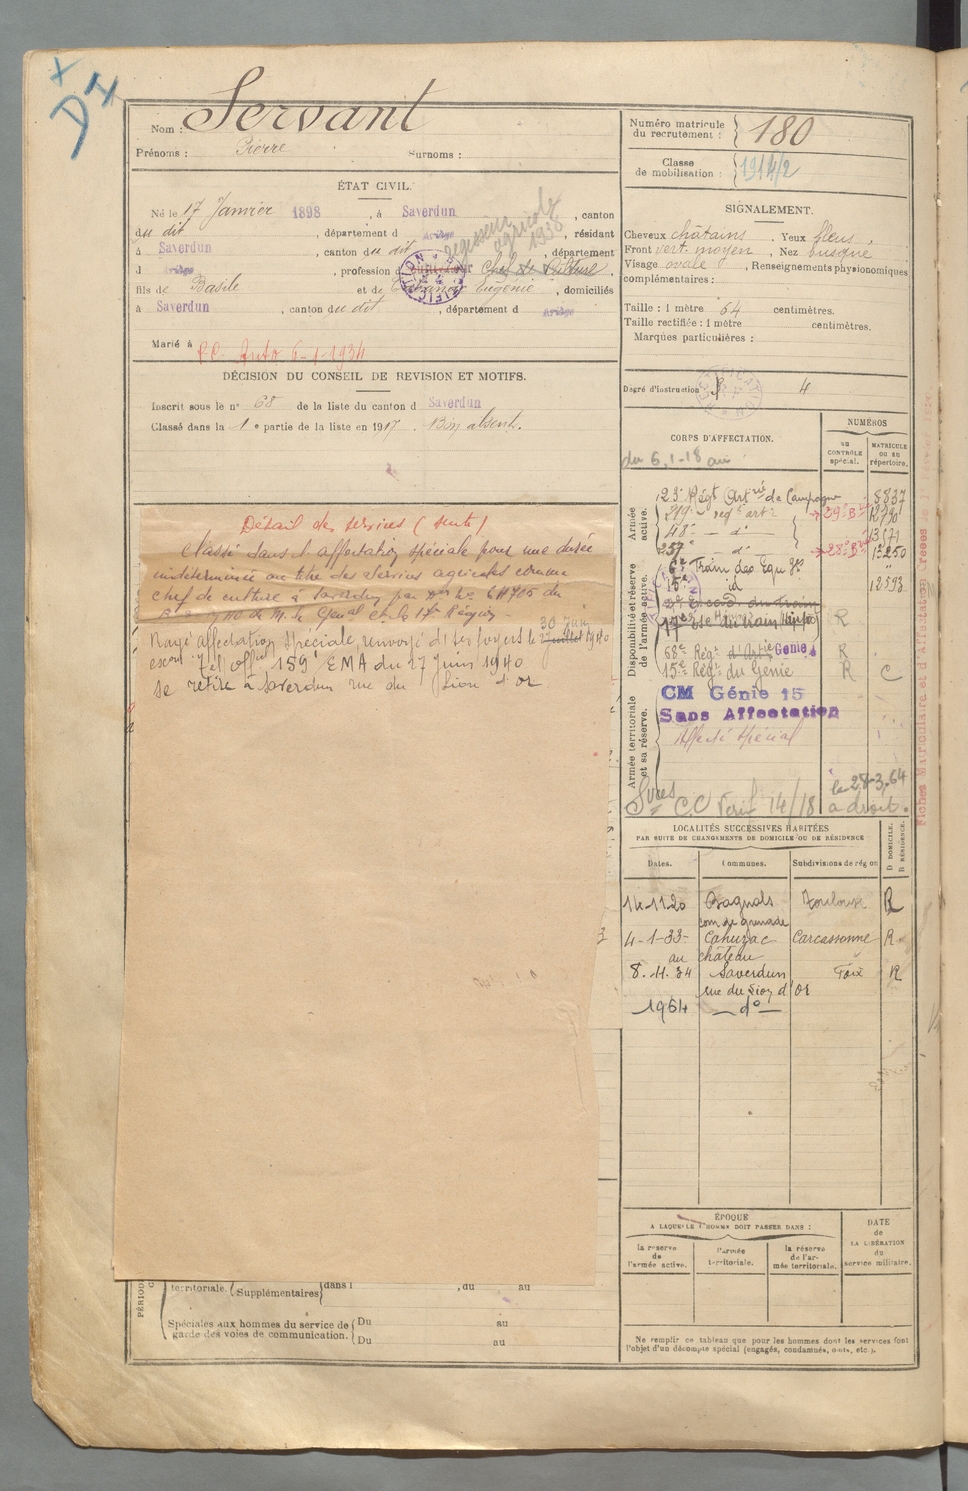 Nom : Servant
Prénoms : Pierre Surnoms :
ÉTAT CIVIL.
Né le 17 Janvier 1898, à Saverdun, canton
du dit, département d Ariège, résidant
à Saverdun, canton du dit, département
d Ariège, profession d Chef de Culture
régisseur agricole 1938
fils de Basile et de Eugénie, domiciliés
à Saverdun, canton du dit, département d Ariège
Marié à
P.C. Auto 6-1-1934
DÉCISION DU CONSEIL DE REVISION ET MOTIFS.
Inscrit sous le n° 68 de la liste du canton d Saverdun
Classé dans la 1 e partie de la liste en 1917. Bon absent.
Détail des services (suite)
Classé dans l'affectation spéciale pour une durée
indéterminée au titre des services agricoles comme
chef de culture à Saverdun par
de M. le Général Ct la 17e Région
Rayé affectation spéciale, renvoyé ds ses foyers le 30 Juin 1940
159 EMA du 27 Juin 1940
se retire à Saverdun rue du Lion d'or
territoriale. Supplémentaires dans l , du au
Spéciales aux hommes du service de garde des voies de communication.
Du au
Du au
Numéro matricule du recrutement : 180
Classe de mobilisation : 1914/2
SIGNALEMENT.
Cheveux châtains. Yeux bleus,
Front vert. moyen, Nez busqué
Visage ovale, Renseignements physionomiques
complémentaires :
Taille : 1 mètre 64 centimètres.
Taille rectifiée : 1 mètre centimètres.
Marques particulières :
Degré d'instruction 4
CORPS D'AFFECTATION.
NUMÉROS
au CONTRÔLE spécial.
MATRICULE ou au répertoire.
du 6.1-18 au
Armée active.
23e Régt Artrie de Campagne 8837
219e regt artie
257e d° 1250
6e Train des Equ
15e id 12593
Disponibilité et réserve de l'armée active.
17e Esc du train R
68e Régt d'Artie Génie R
15e Régt du Génie R C
CM Génie 15
Sans Affectation
Affecté spécial
Armée territoriale et sa réserve.
CC Verif 14/18 le 28-3.64
a droit.
LOCALITÉS SUCCESSIVES HABITÉES
PAR SUITE DE CHANGEMENTS DE DOMICILE OU DE RÉSIDENCE
Dates. Communes. Subdivisions de région
D DOMICILE. R RÉSIDENCE.
14-11-20 Bagnols Toulouse R
com de grenade
4-1-33 Cahuzac Carcassonne R
au château
8.11.34 Saverdun Foix R
rue du Lion d'or
1964 d°
ÉPOQUE
A LAQUELLE L'HOMME DOIT PASSER DANS :
la réserve de l'armée active.
l'armée territoriale.
la réserve de l'armée territoriale.
DATE de LA LIBÉRATION du service militaire.
Ne remplir ce tableau que pour les hommes dont les services font
l'objet d'un décompte spécial (engagés, condamnés, omis, etc.).